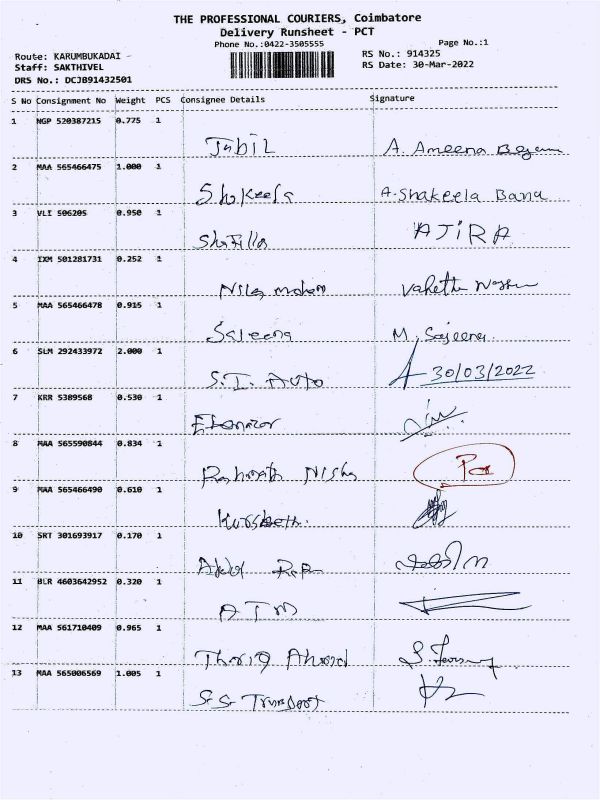 THE PROFESSIONAL COURIERS, Coimbatore
Delivery Runsheet - PCT
Phone No.:0422-3505555 Page No.:1
Route: KARUMBUKADAI - RS No.: 914325
Staff: SAKTHIVEL RS Date: 30-Mar-2022
DRS No.: DCJ891432501
S No Consignment No Weight PCS Consignee Details Signature
1 NGP 520387215 0.775 1
Jubil A. Ameena Begam
2 MAA 565466475 1.000 1
Shakeela A. Shakeela Banu
3 VLI 506205 0.950 1
Shafilla AJiRA
4 IXM 501281731 0.252 1
5 MAA 565466478 0.915 1
Sajeena M. Sajeena
6 SLM 292433972 2.000 1
S.I. Auto 30/03/2022
7 KRR 5389568 0.530 1
Ebenazar
8 MAA 565590844 0.834 1
Rahmath Nisha
9 MAA 565466490 0.610 1
10 SRT 301693917 0.170 1
11 BLR 4603642952 0.320 1
ATM
12 MAA 561710409 0.965 1
Thariq Ahmad
13 MAA 565006569 1.005 1
S.S. Transport